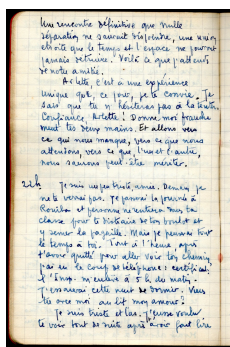 Une rencontre définitive que nulle
séparation ne saurait disjoindre, une union
étroite que le temps et l'espace ne pourront
jamais détruire. Voilà ce que j'attends
de notre amitié.
Arlette, c'est à une expérience
unique que, ce jour, je te convie. Je
sais que tu n'hésiteras pas à la tenter.
Confiance, Arlette ! Donne-moi franche
ment tes deux mains. Et allons vers
ce qui nous manque, vers ce que nous
attendons, vers ce que l'un et l'autre,
nous saurons peut-être mériter.
22h Je suis un peu triste, amie. Demain je
ne te verrai pas. Je passerai la journée à
Rouiba et personne ne rentrera dans ta
classe pour te distraire de ton boulot et
y semer la pagaille. Mais je penserai tout
le temps à toi. Tout à l'heure après
t'avoir quitté pour aller voir ton
j'ai eu le coup de téléphone : certificat,
l'Insp. m'enlève à 5 h. du matin.
J'essaierai cette nuit de dormir. Viens
tu avec moi au lit mon amour ?
Je suis triste et las. J'eusse voulu
te voir tout de suite après avoir fait lire